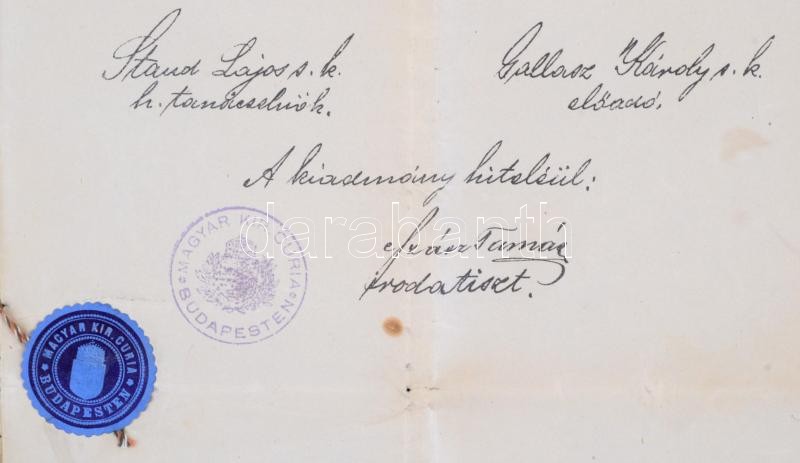 Staud Lajos s. k.
h. tanácselnök.
Gallasz Károly s. k.
előadó.
A kiadmány hiteléül:
Szász Tamás
irodatiszt.
MAGYAR KIR. CURIA
BUDAPESTEN
MAGYAR KIR. CURIA
BUDAPESTEN
darabanth